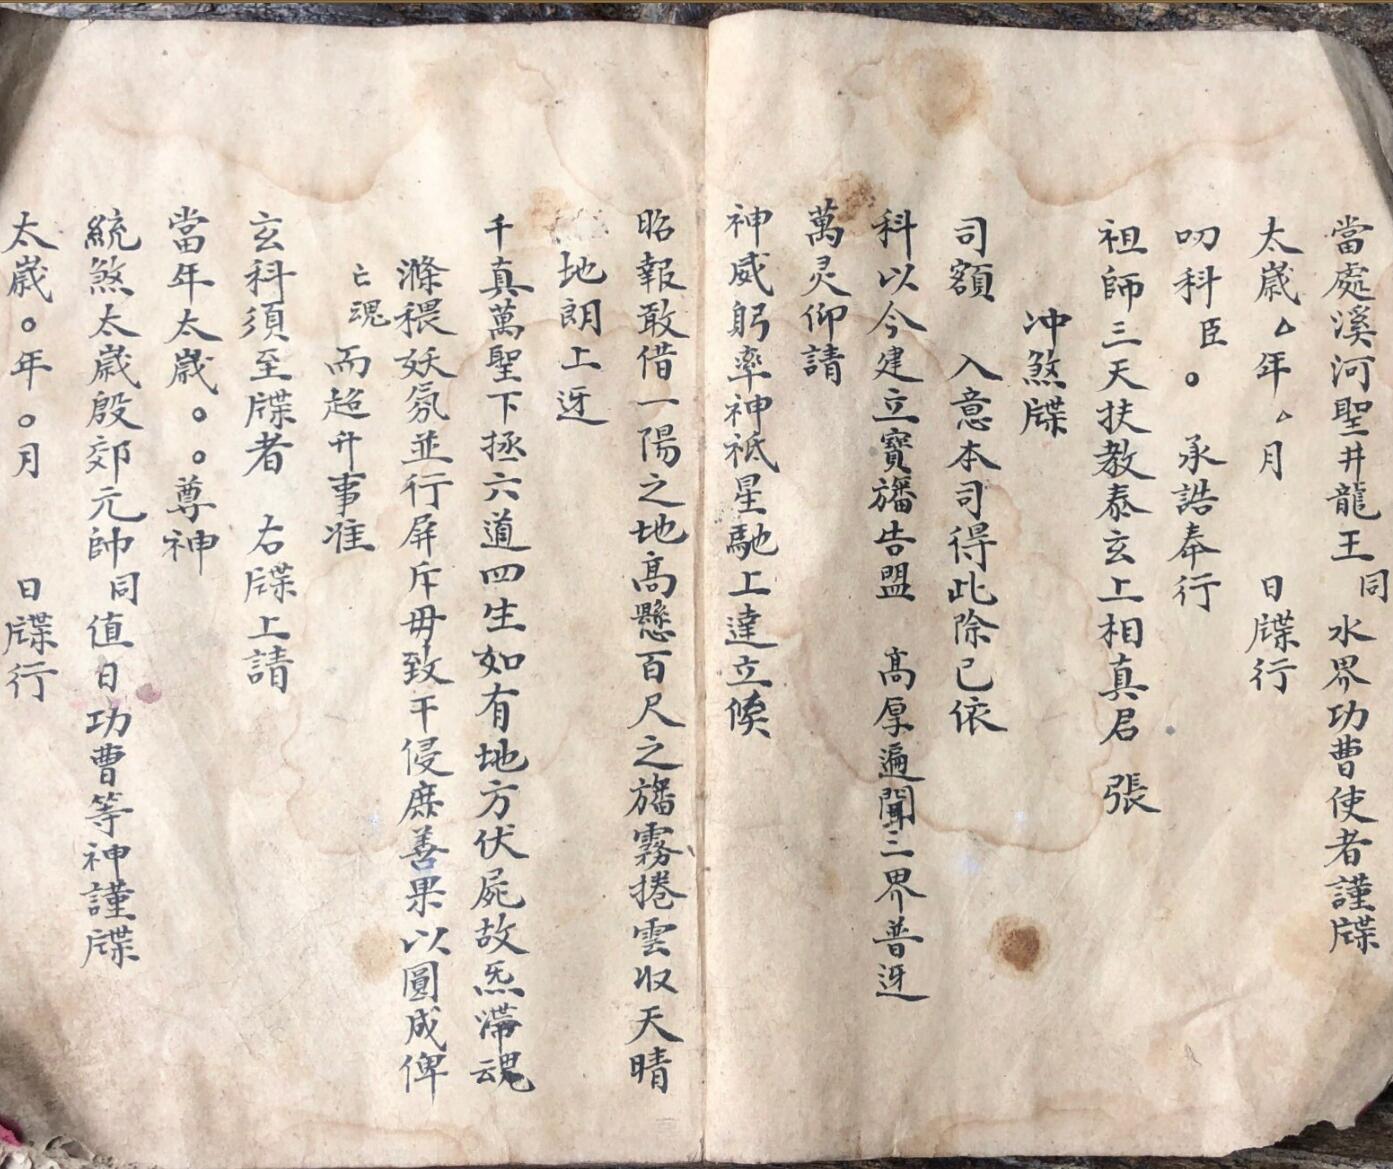 當處溪河聖井龍王同 水界功曹使者謹牒
太歲△年△月 日牒行
叨科臣。 承誥奉行
祖師三天扶教泰玄上相真君 張
冲煞牒
司額 入意本司得此除已依
科以今建立寶旛告盟 髙厚遍聞三界普迓
萬灵仰請
神威躬率神祇星馳上達立候
昭報敢借一陽之地髙懸百尺之旛霧捲雲収天晴
地朗上迓
千真萬聖下拯六道四生如有地方伏屍故炁滯魂
滌穢妖氛並行屏斥毋致干侵庶善果以圓成俾
亡魂而超升事准
玄科須至牒者 右牒上請
當年太歲。。尊神
統煞太歲殷郊元帥同值日功曹等神謹牒
太歲。年。月 日牒行